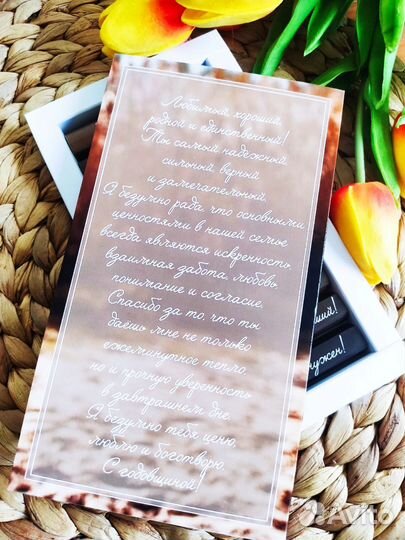 Любимый, хороший,
родной и единственный!
Ты самый надежный,
сильный, верный
и замечательный.
Я безумно рада, что основными
ценностями в нашей семье
всегда являются искренность,
взаимная забота, любовь,
понимание и согласие.
Спасибо за то, что ты
даешь мне не только
ежеминутное тепло,
но и прочную уверенность
в завтрашнем дне.
Я безумно тебя ценю,
люблю и боготворю.
С годовщиной!
нужен!
Avito